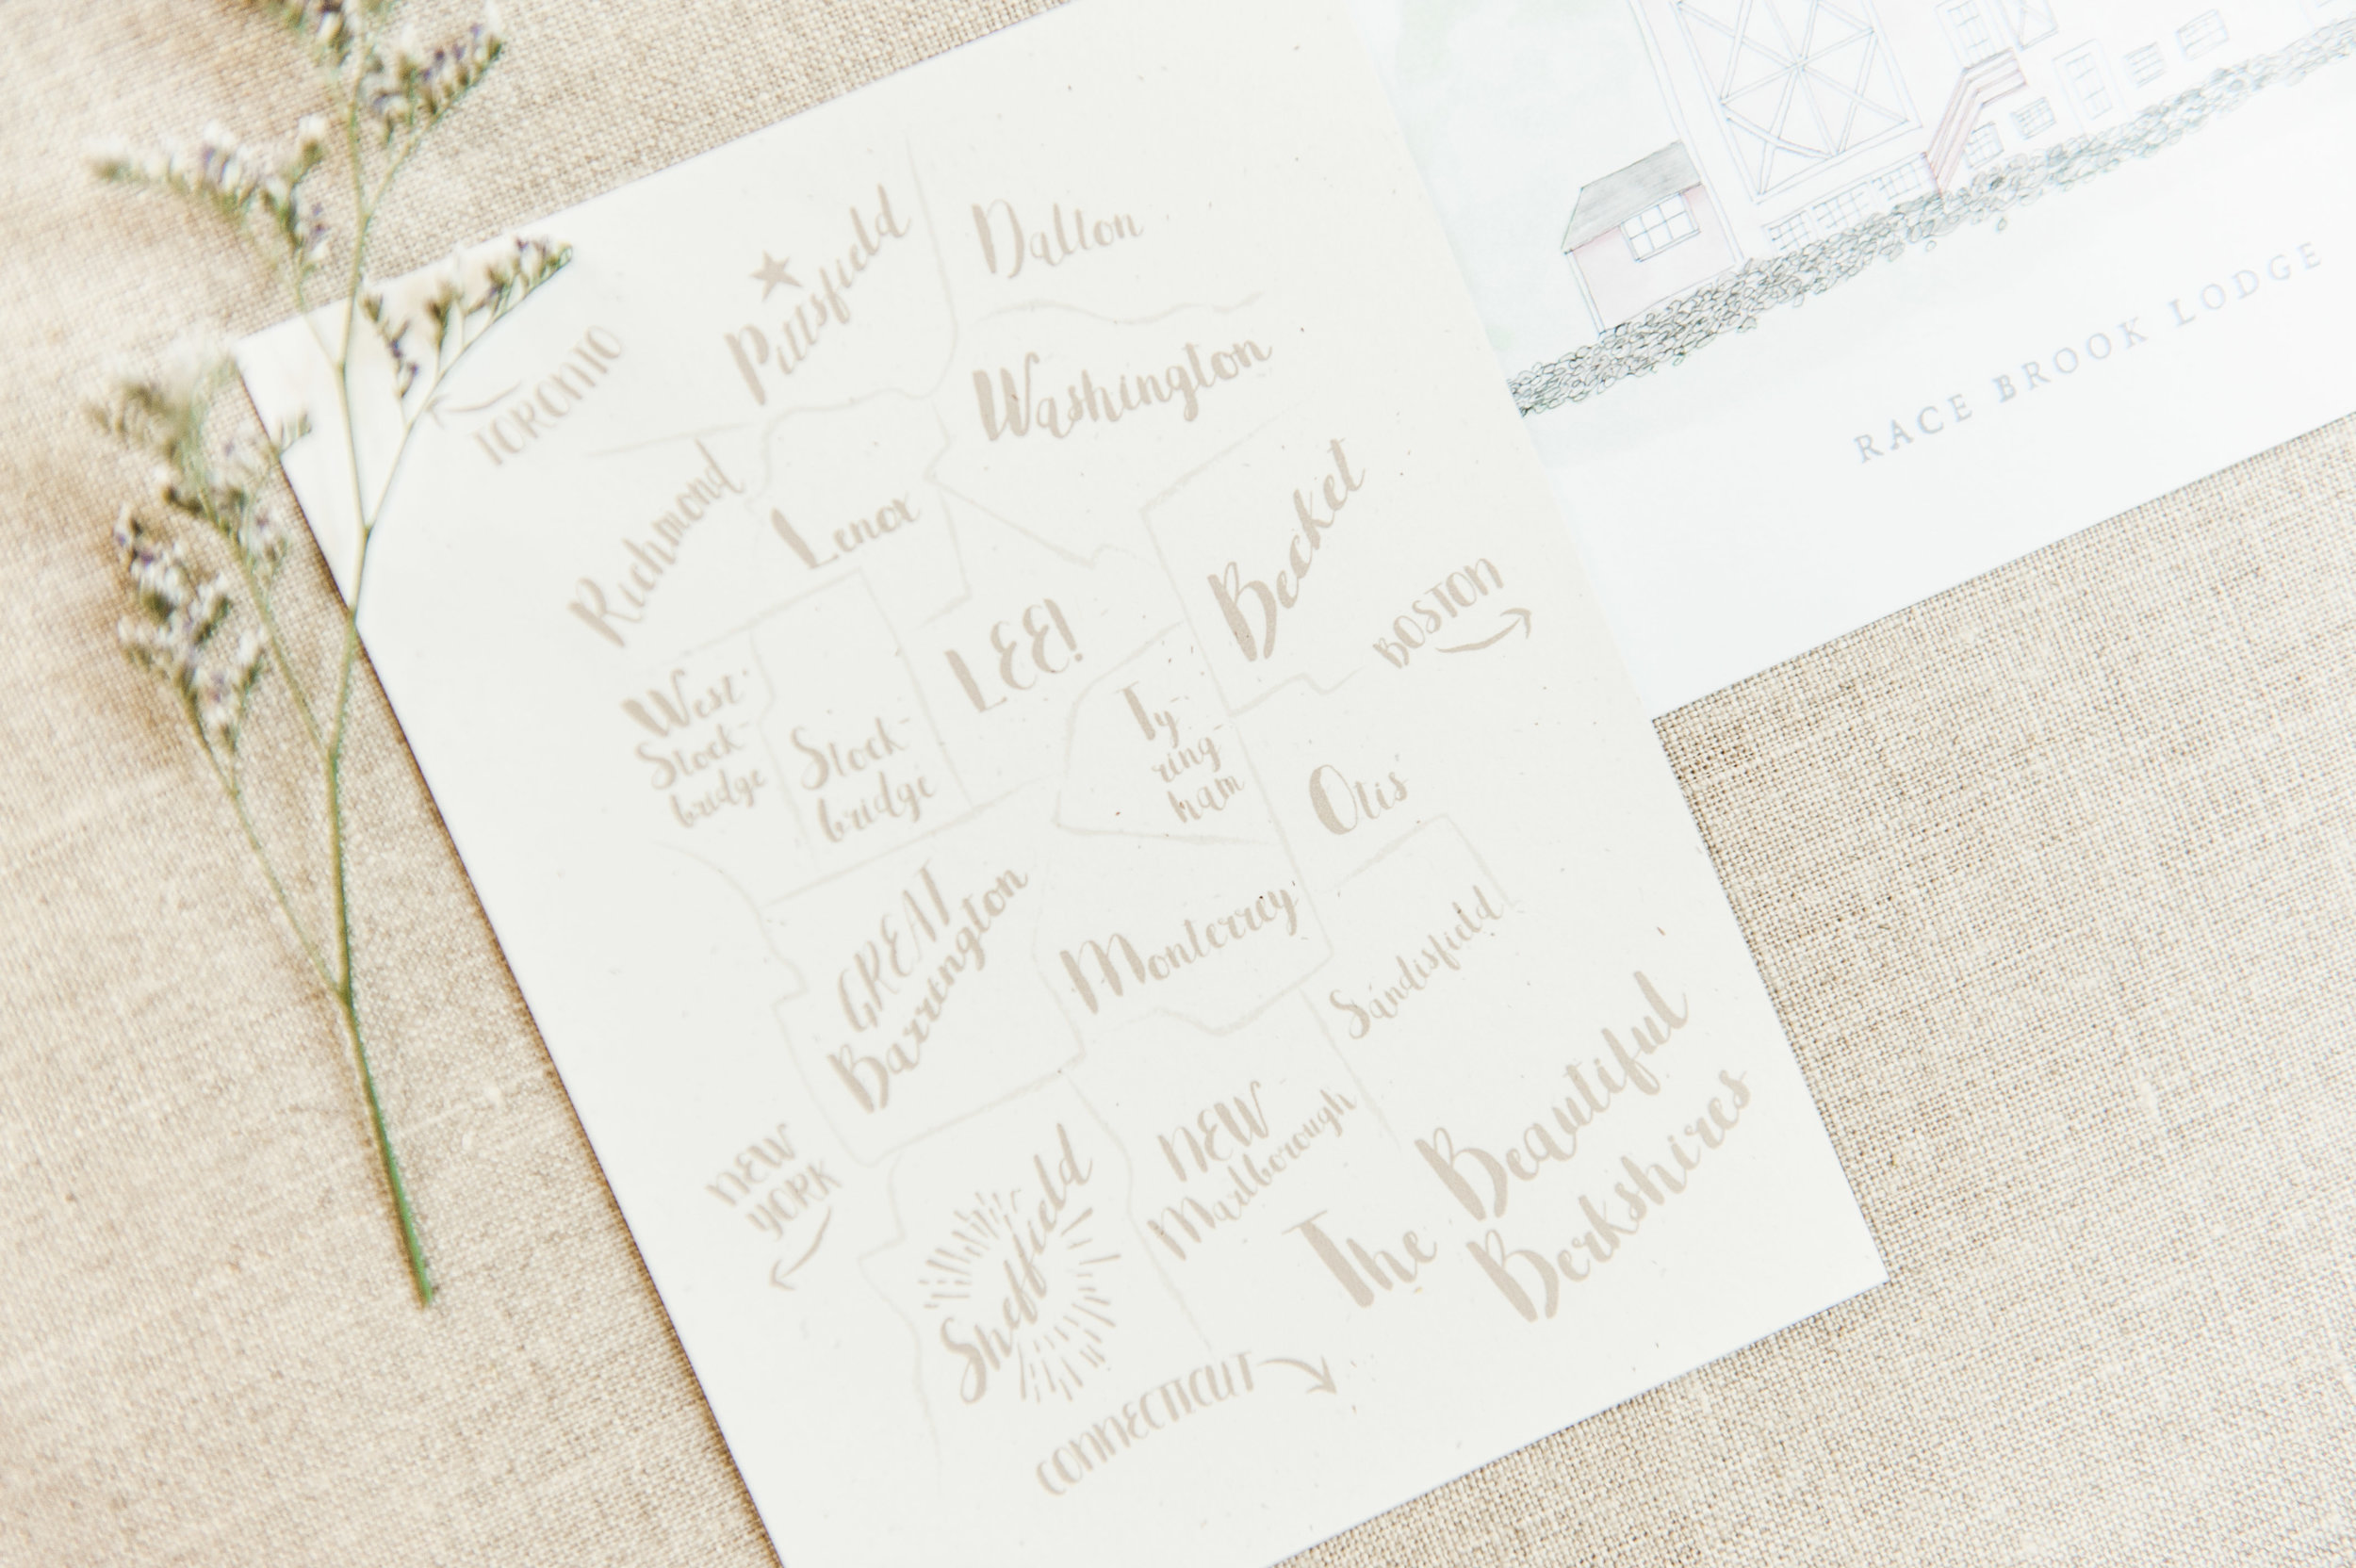 Pittsfield
Dalton
TORONTO
Washington
Richmond
Lenox
Becket
BOSTON
LEE!
West
Stock-
bridge
Stock-
bridge
Ty-
ring
ham
Otis
GREAT
Barrington
Monterrey
Sandisfield
NEW
YORK
Sheffield
NEW
Marlborough
The Beautiful
Berkshires
CONNECTICUT
RACE BROOK LODGE